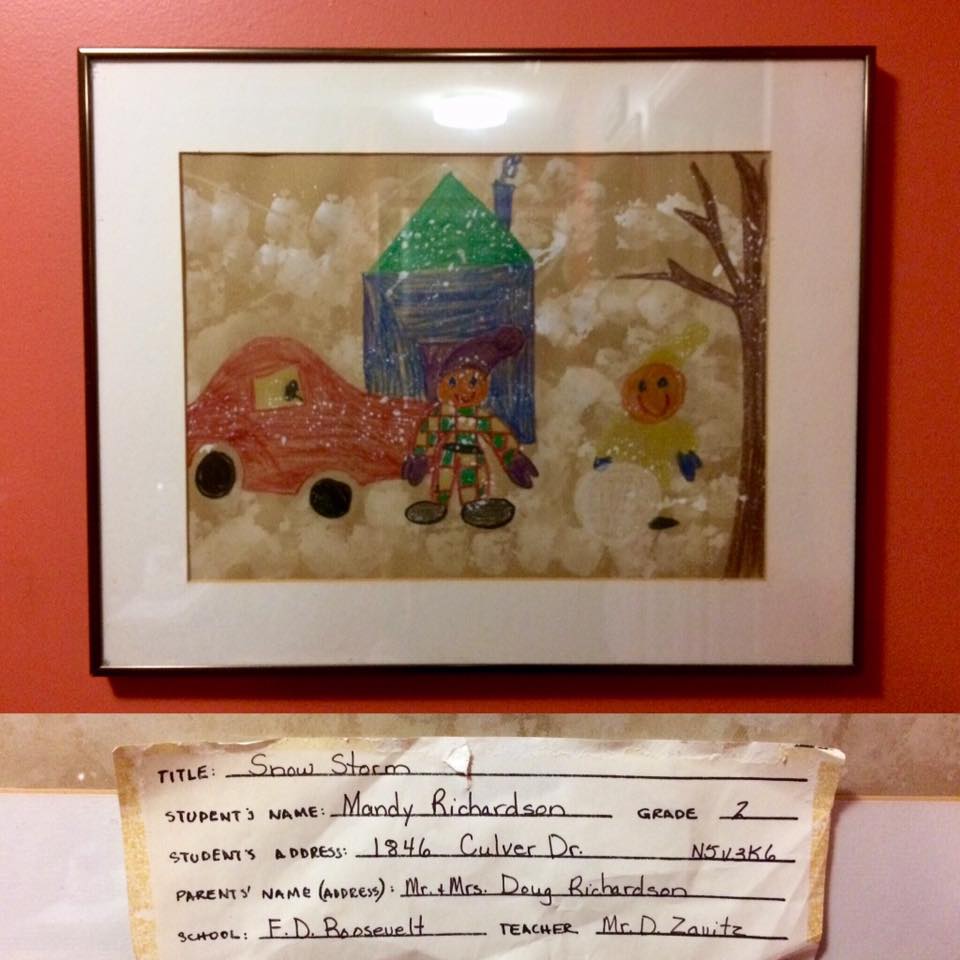 TITLE: Snow Storm
STUDENT'S NAME: Mandy Richardson GRADE 2
STUDENT'S ADDRESS: 1846 Culver Dr. N5V3K6
PARENTS' NAME (ADDRESS): Mr. + Mrs. Doug Richardson
SCHOOL: F.D. Roosevelt TEACHER Mr. D. Zavitz